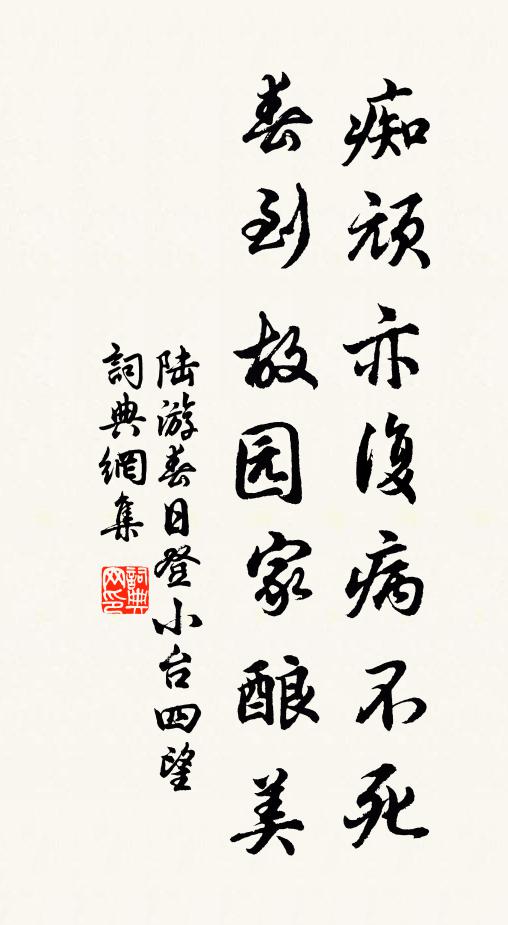 痴顽亦復病不死
春到故园家酿美
陆游春日登小台四望
詞典網集
詞典网印